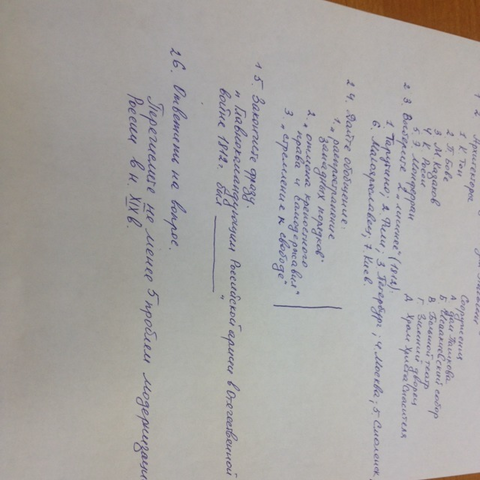 2. Архитекторы
Сооружения
1. К. Тон
А. Дом Пашкова
2. О. Бове
Б. Исаакиевский собор
3. М. Казаков
В. Большой театр
4. К. Росси
Г. Зимний дворец
5. О. Монферран
Д. Храм Христа Спасителя
2 3. Выберите 2 „лишних" (1812г.)
1. Тарутино; 2. Фили; 3. Петербург; 4. Москва; 5. Смоленск,
6. Малоярославец; 7. Киев.
2 4. Дайте обобщение:
1. „распространение
западных порядков"
2. „отмена крепостного
права и самодержавия"
3. „стремление к свободе"
1 5. Закончите фразу.
„Главнокомандующим Российской армии в Отечественной
войне 1812г. был ______"
2 6. Ответьте на вопрос.
Перечислите не менее 5 проблем модернизации
России в н. XIX в.